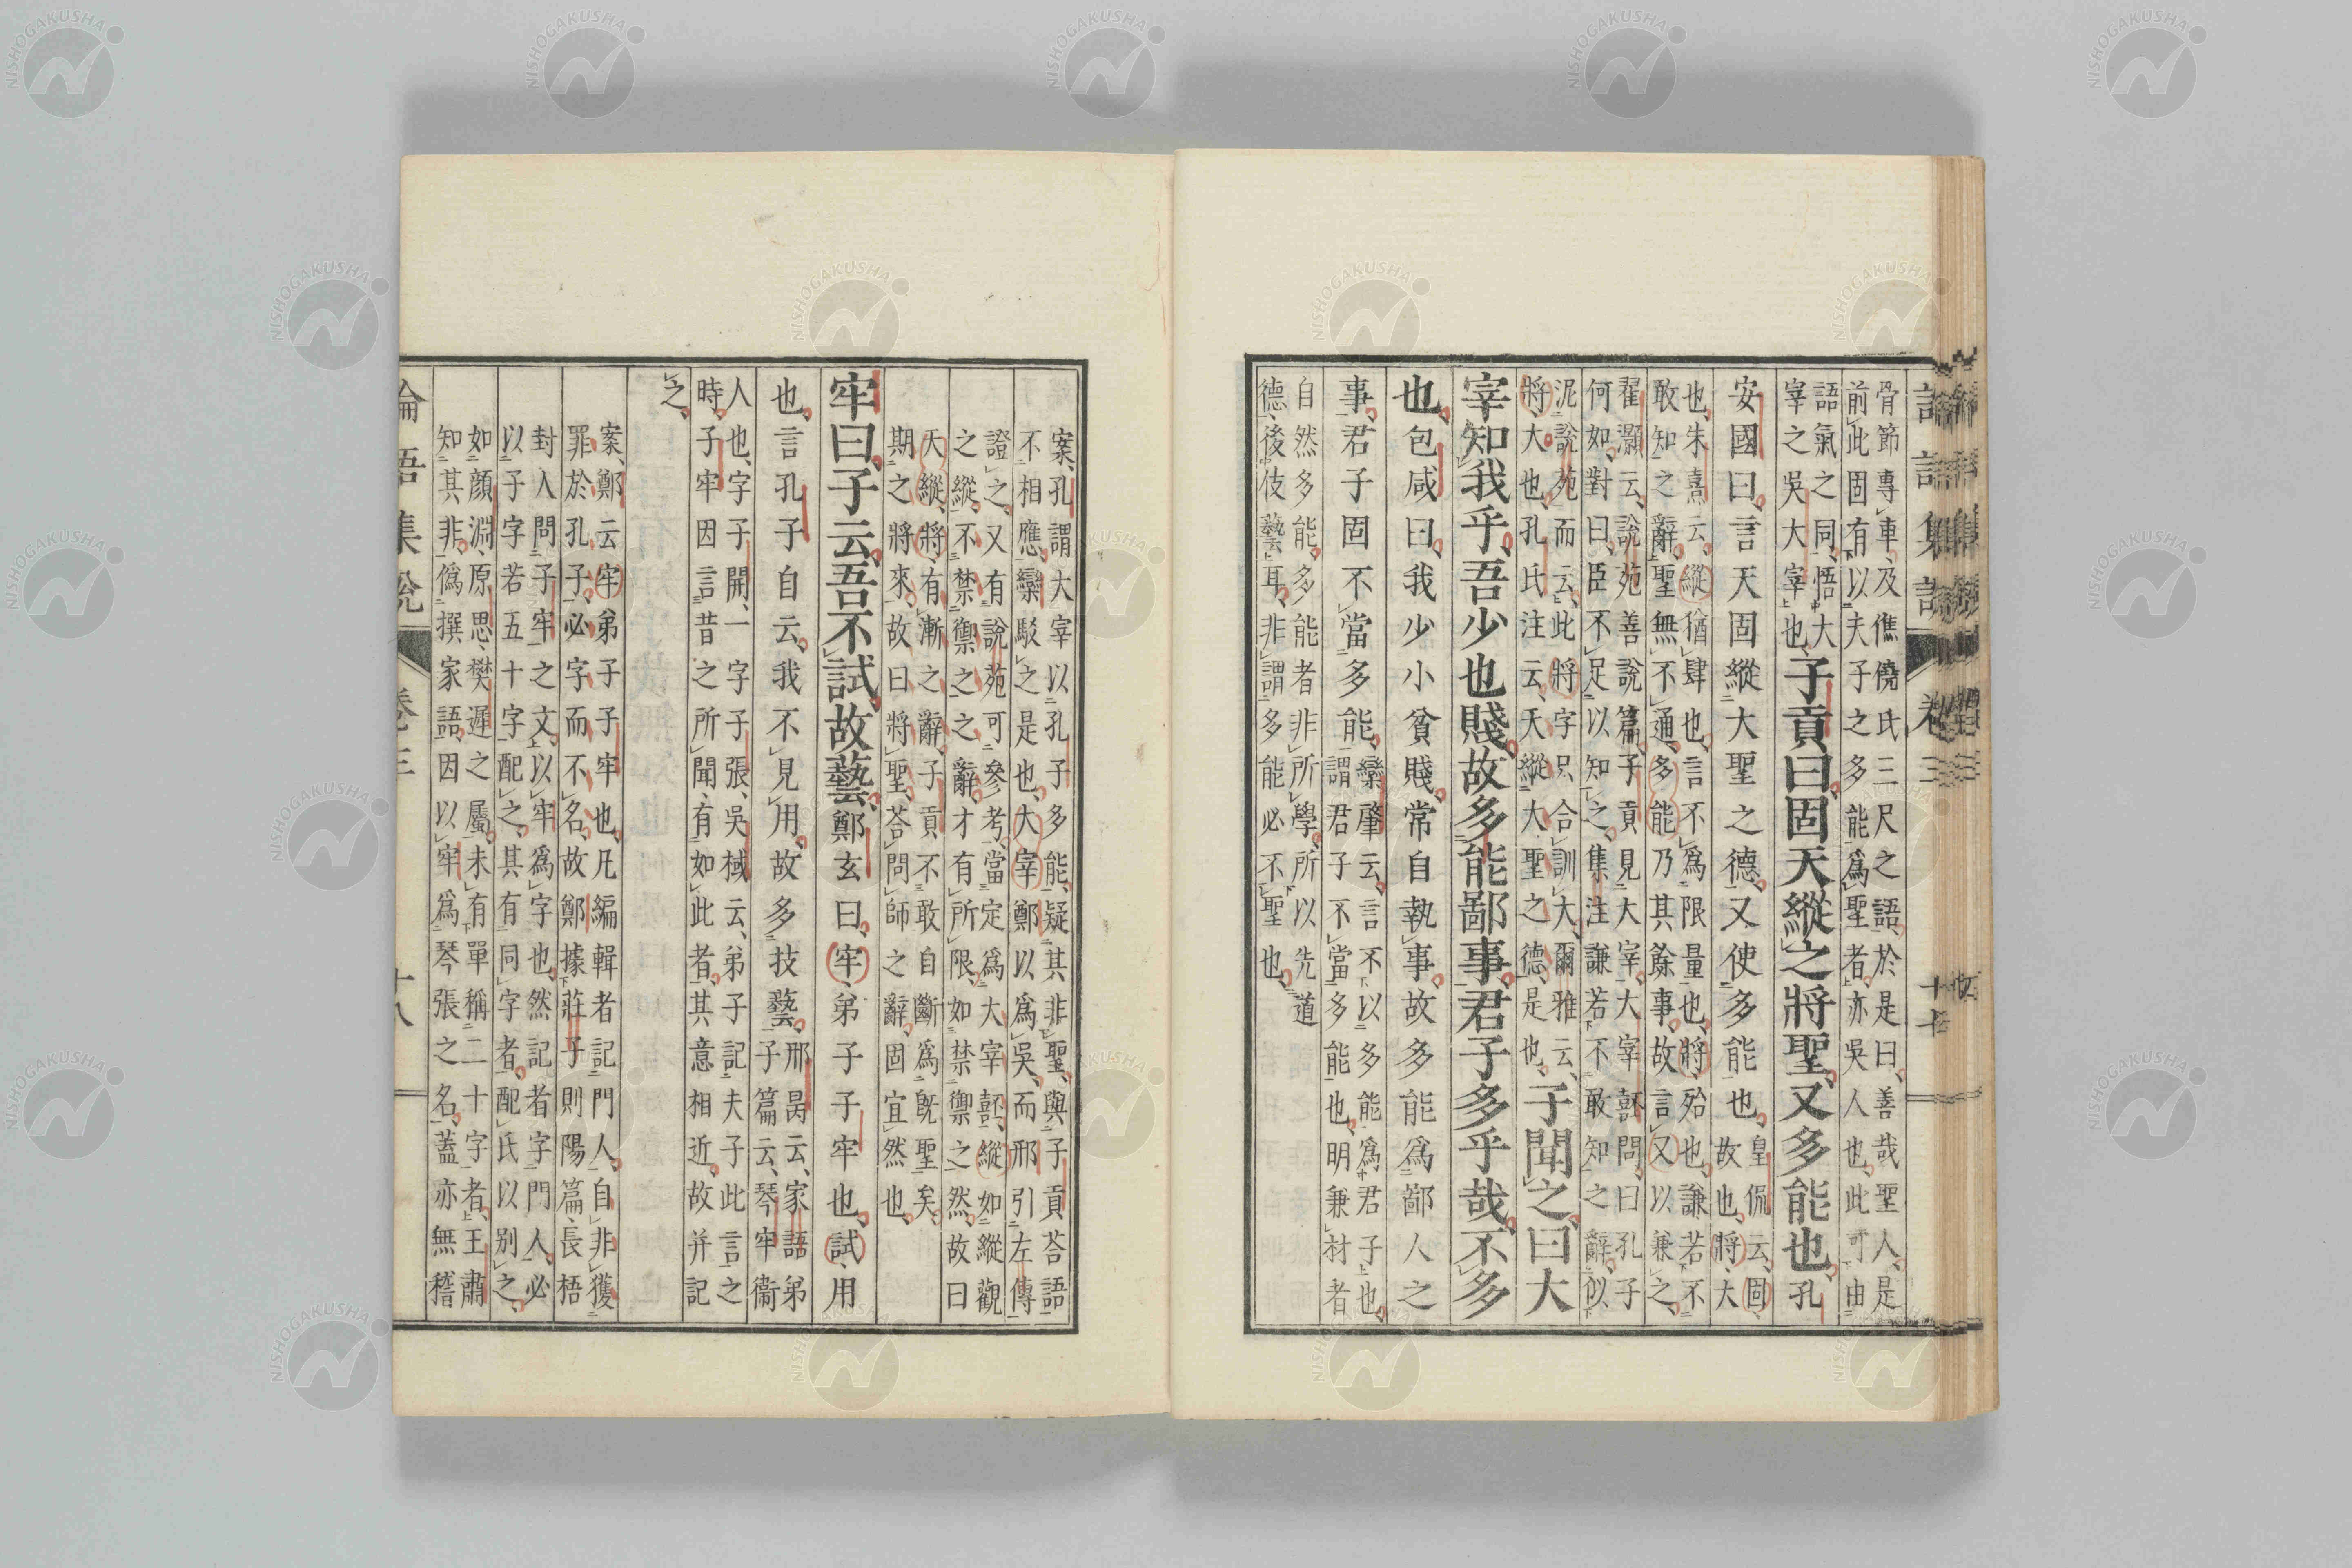 骨節專車、及僬僥氏三尺之語、於是曰、善哉聖人、是
前此固有以夫子之多能爲聖者、亦吳人也、此可由
語氣之同、悟大
宰之吳大宰也、子貢曰、固天縱之將聖、又多能也、孔
安國曰、言天固縱大聖之德、又使多能也、皇侃云、固、
故也、將、大
也、朱熹云、縱猶肆也、言不爲限量也、將、殆也、謙若不
敢知之辭、聖無不通、多能乃其餘事、故言又以兼之、
翟灝云、說苑善說篇、子貢見大宰、大宰嚭問、曰孔子
何如、對曰、臣不足以知之、集注謙若不敢知之辭、似
泥說苑而云、此將字只合訓大、爾雅云、
將、大也、孔氏注云、天縱大聖之德、是也、子聞之、曰大
宰知我乎、吾少也賤、故多能鄙事、君子多乎哉、不多
也、包咸曰、我少小貧賤、常自執事、故多能爲鄙人之
事、君子固不當多能、欒肇云、言不以多能爲君子也、
謂君子不當多能也、明兼材者
自然多能、多能者非所學、所以先道
德、後伎藝耳、非謂多能必不聖也、
案、孔謂大宰以孔子多能、疑其非聖、與子貢荅語
不相應、欒駁之是也、大宰鄭以爲吳、而邢引左傳
證之、又有說苑可參考、當定爲大宰嚭、縱如縱觀
之縱、不禁禦之之辭、才有所限、如禁禦之然、故曰
天縱、將、有漸之辭、子貢不敢自斷爲旣聖矣、
期之將來、故曰將聖、荅問師之辭、固宜然也、
牢曰、子云、吾不試、故藝、鄭玄曰、牢、弟子子牢也、試、用
也、言孔子自云、我不見用、故多技藝、邢昺云、家語弟
子篇云、琴牢衞
人也、字子開、一字子張、吳棫云、弟子記夫子此言之
時、子牢因言昔之所聞、有如此者、其意相近、故并記
之、
案、鄭云牢弟子子牢也、凡編輯者記門人、自非獲
罪於孔子、必字而不名、故鄭據莊子則陽篇、長梧
封人問子牢之文、以牢爲字也、然記者字門人、必
以子字若五十字配之、其有同字者、配氏以別之、
如顏淵、原思、樊遲之屬、未有單稱二十字者、王肅
知其非、僞撰家語、因以牢爲琴張之名、蓋亦無稽
論語集說 卷三 十八